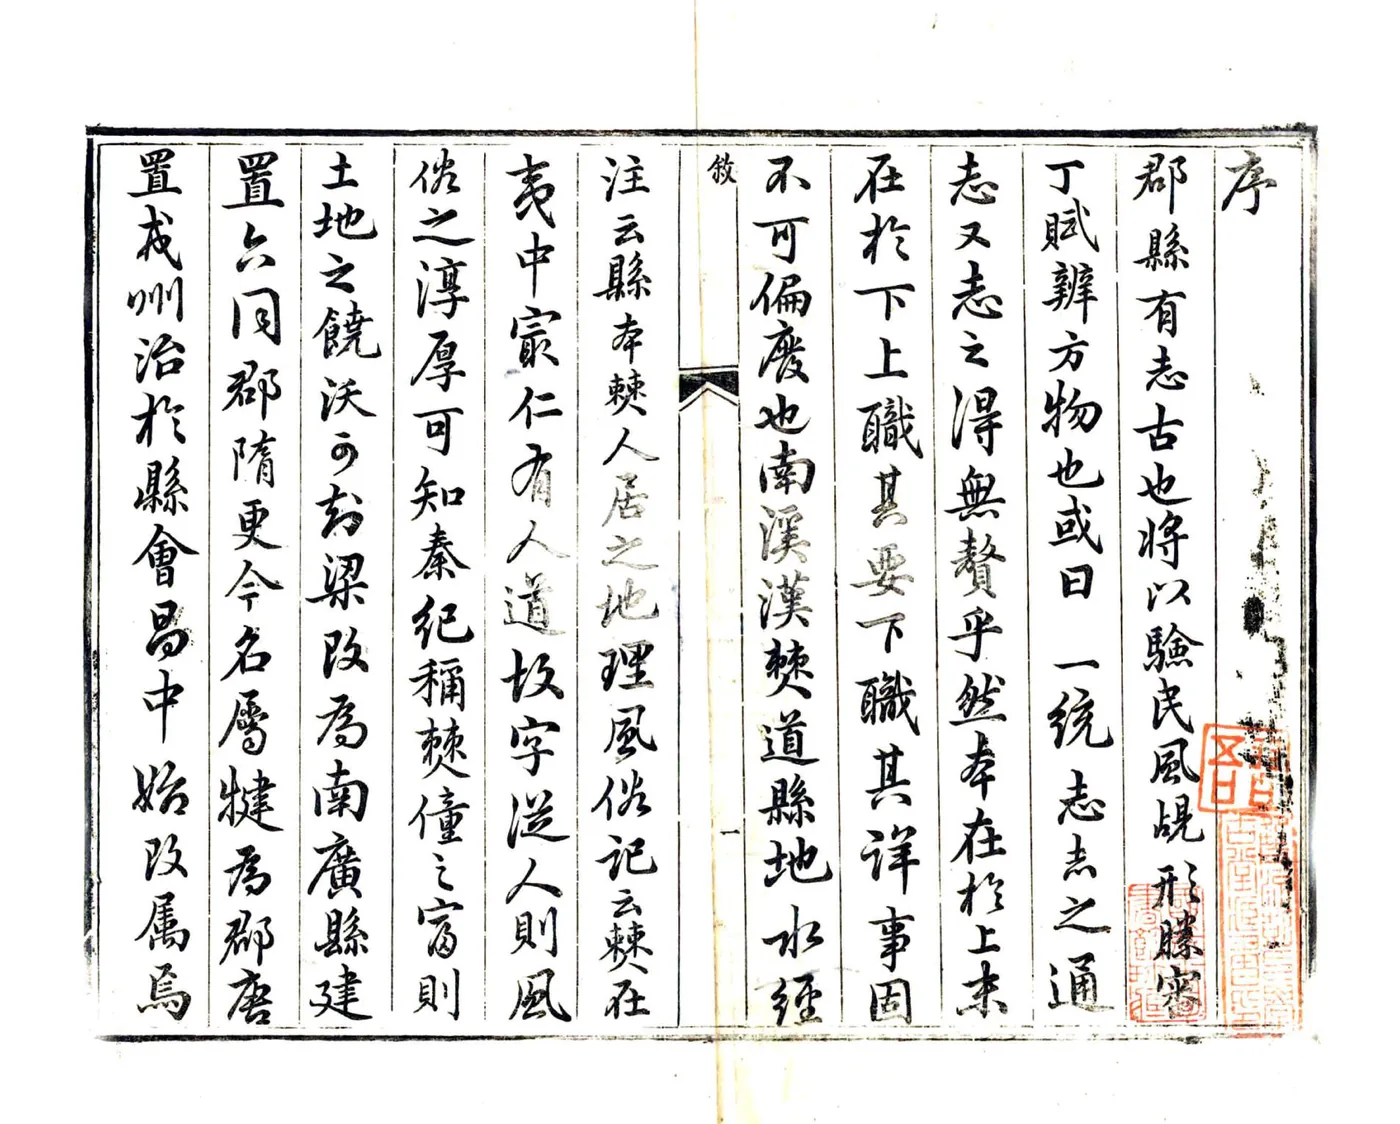 序
郡縣有志古也將以驗民風覘形勝察
丁賦辨方物也或曰一統志志之通
志又志之得無贅乎然本在於上末
在於下上職其要下職其詳事固
不可偏廢也南溪漢僰道縣地水經
敘
一
注云縣本僰人居之地理風俗記云僰在
夷中最仁有人道故字從人則風
俗之淳厚可知秦紀稱僰僮之富則
土地之饒沃可知梁改為南廣縣建
置六同郡隋更今名屬犍為郡唐
置戎州治於縣會昌中始改属焉